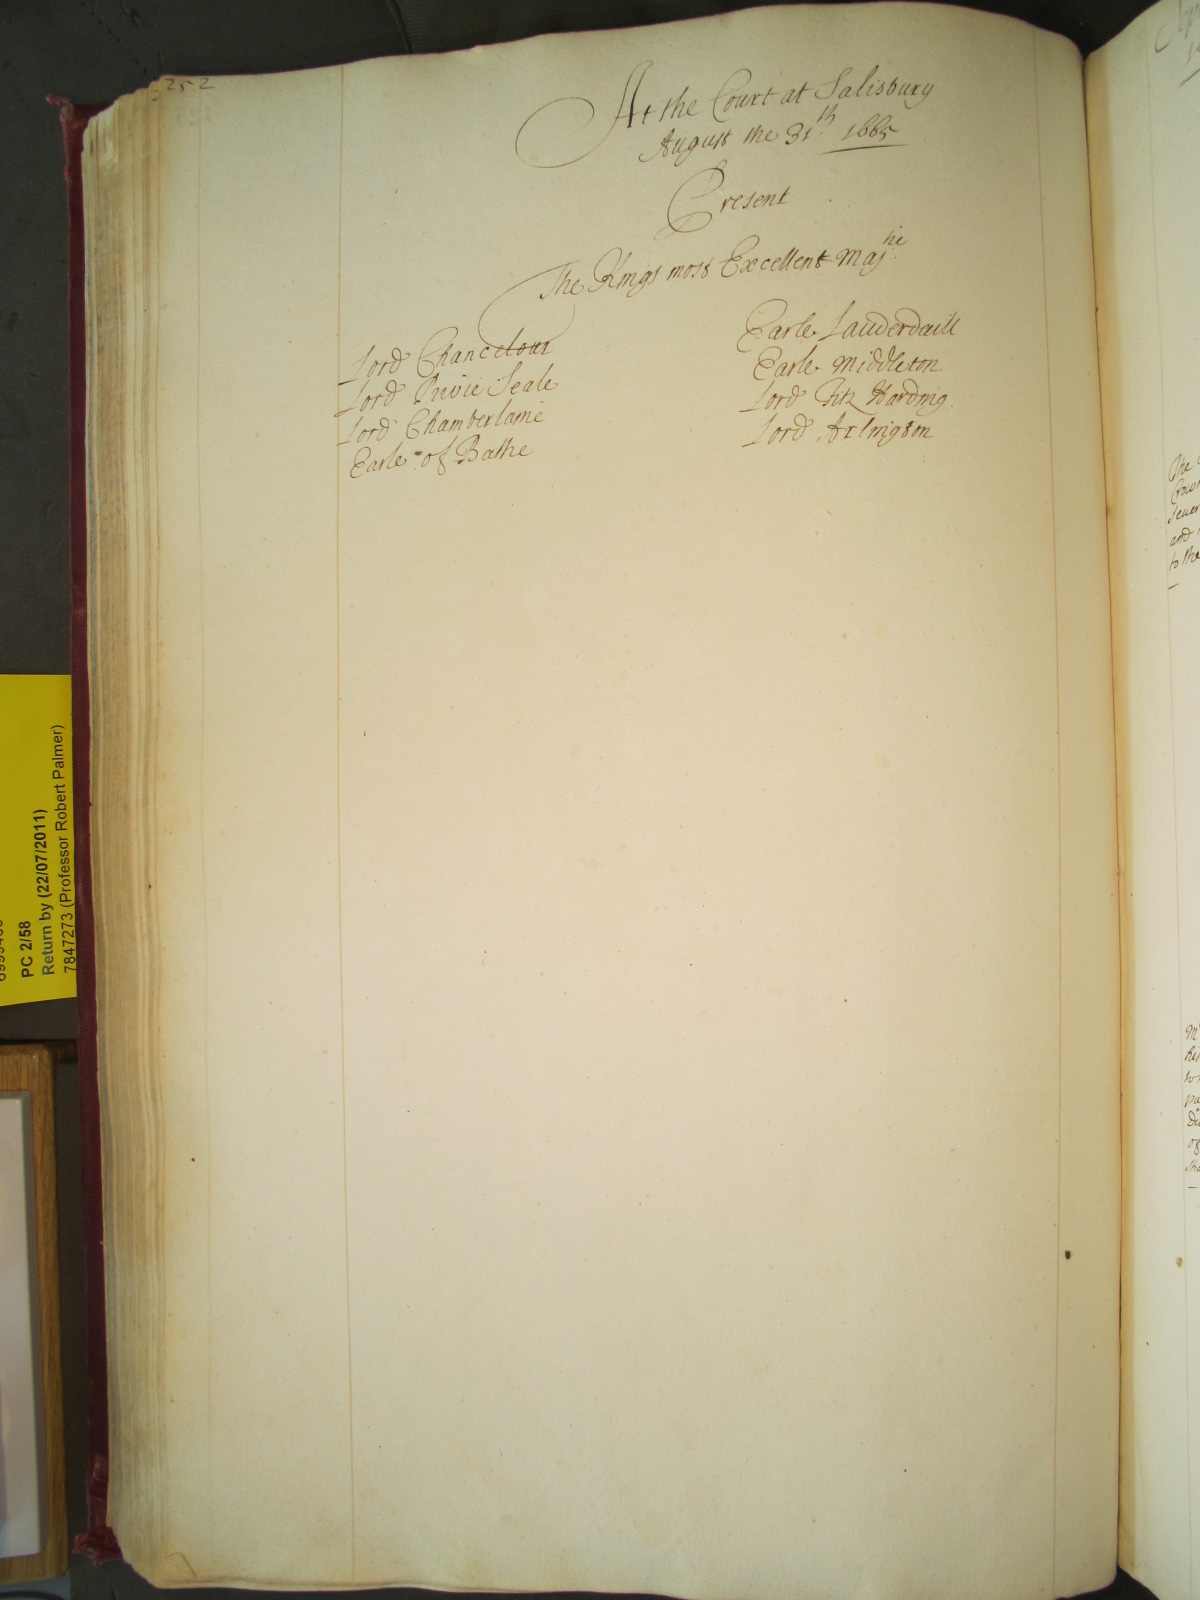 252
At the Court at Salisbury
August the 31th 1665
Present
The Kings most Excellent Majtie
Lord Chancelour
Lord Privie Seale
Lord Chamberlaine
Earle of Bathe
Earle Lauderdaill
Earle Middleton
Lord Fitz Harding
Lord Arlington
PC 2/58
Return by (22/07/2011)
7847273 (Professor Robert Palmer)
The
and
to the
of